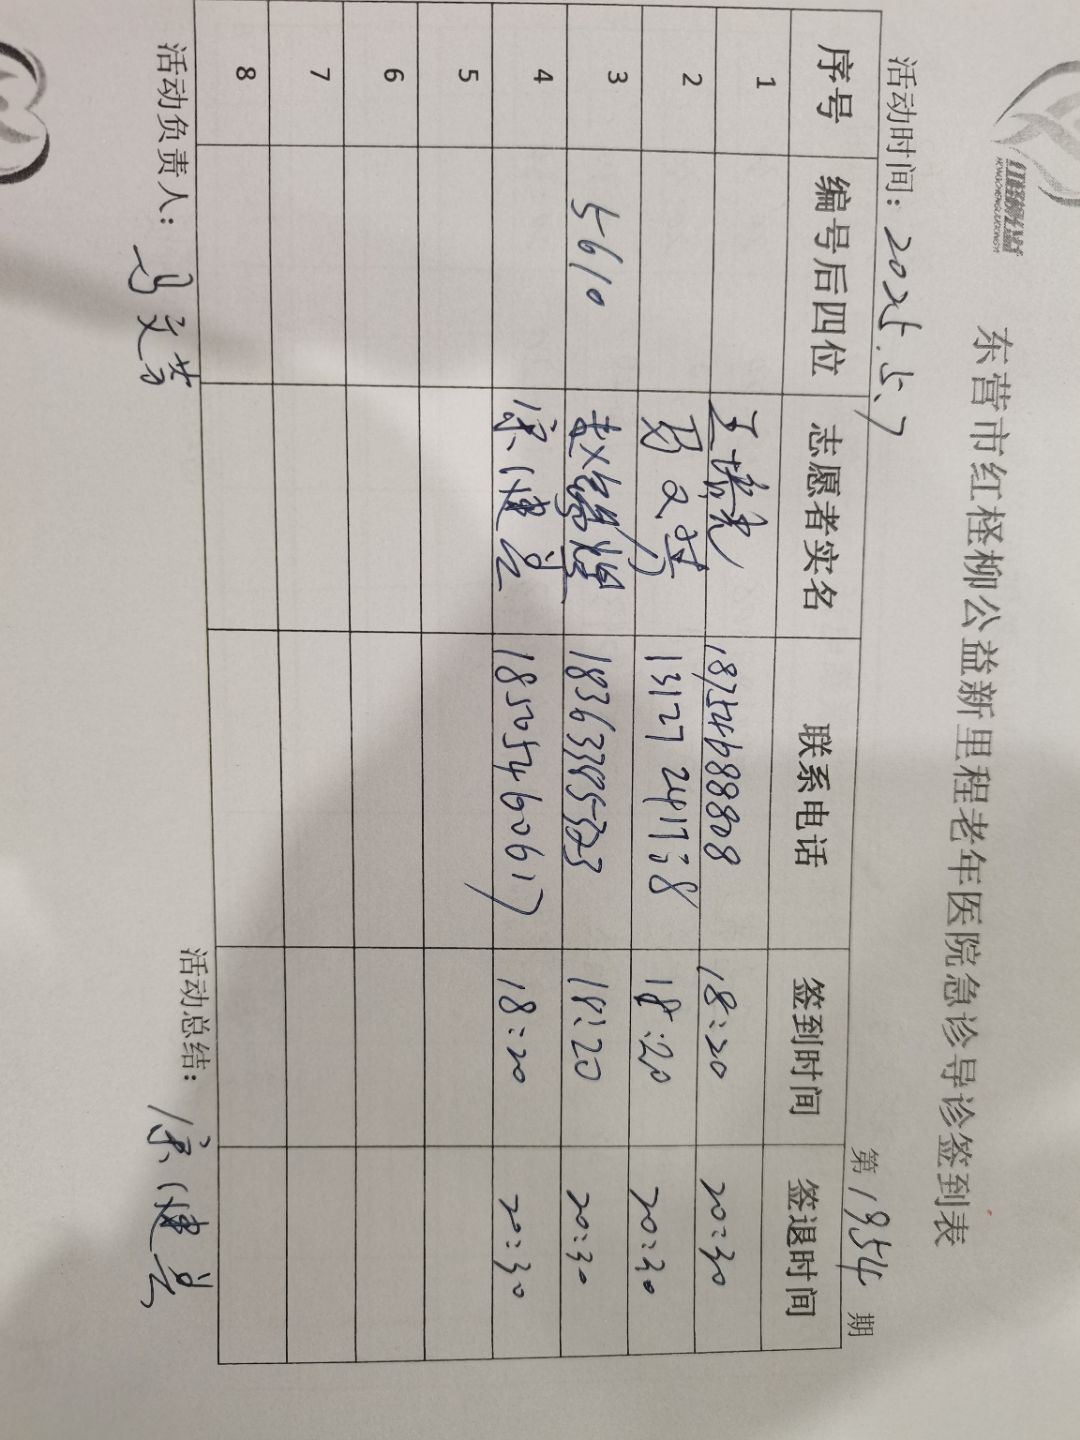 红柽柳公益
HONGCHENGLIUGONGYI
东营市红柽柳公益新里程老年医院急诊导诊签到表
活动时间：2025.5.7 第1954期
序号 编号后四位 志愿者实名 联系电话 签到时间 签退时间
1 18754688808 18:20 20:30
2 马文芳 18:20 20:30
3 5610 18363395323 18:20 20:30
4 宗健兰 18505460617 18:20 20:30
5
6
7
8
活动负责人：马文芳 活动总结：宗健兰